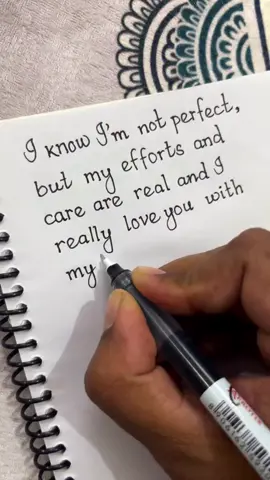 I know I'm not perfect,
but my efforts and
care are real and I
really love you with
my